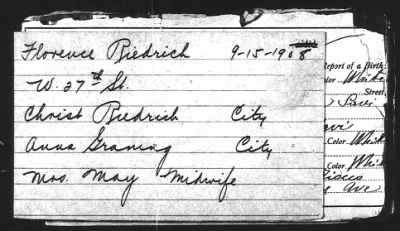 Florence Riedrich 9-15-1908
W. 27th St.
Christ Riedrich City
Anna Graning City
Mrs. May Midwife
Report of a Birth
Color White
Street
Color Whit
Color Whit
Ave